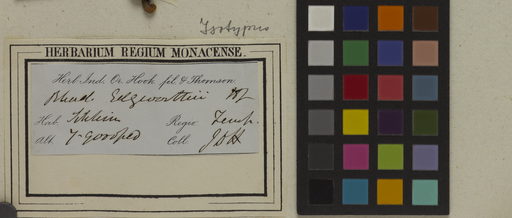 Isotypus
HERBARIUM REGIUM MONACENSE.
Herb. Ind. Or. Hook. fil. & Thomson.
Rhod. Edgworthii Hf
Hab. Sikkim Regio Temp.
Alt. 7-9000 ped Coll. J.D.H.